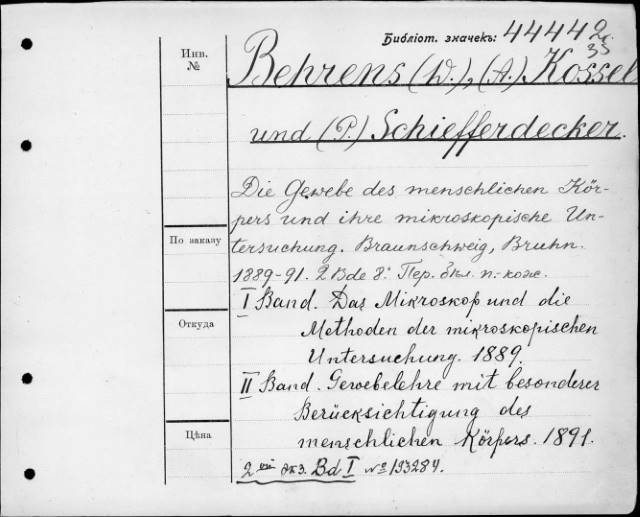 Библіот. значекъ: 44442
35
Инв.
№
Behrens (W.), (A.) Kossel
und (P.) Schiefferdecker.
Die Gewebe des menschlichen Kör-
pers und ihre mikroskopische Un-
tersuchung. Braunschweig, Bruhn.
1889-91. 2 Bde 8º Пер. 2 кл. п.-кож.
I Band. Das Mikroskop und die
Methoden der mikroskopischen
Untersuchung. 1889.
II Band. Gewebelehre mit besonderer
Berücksichtigung des
menschlichen Körpers. 1891.
2ой экз. Bd I № 193284.
По заказу
Откуда
Цѣна